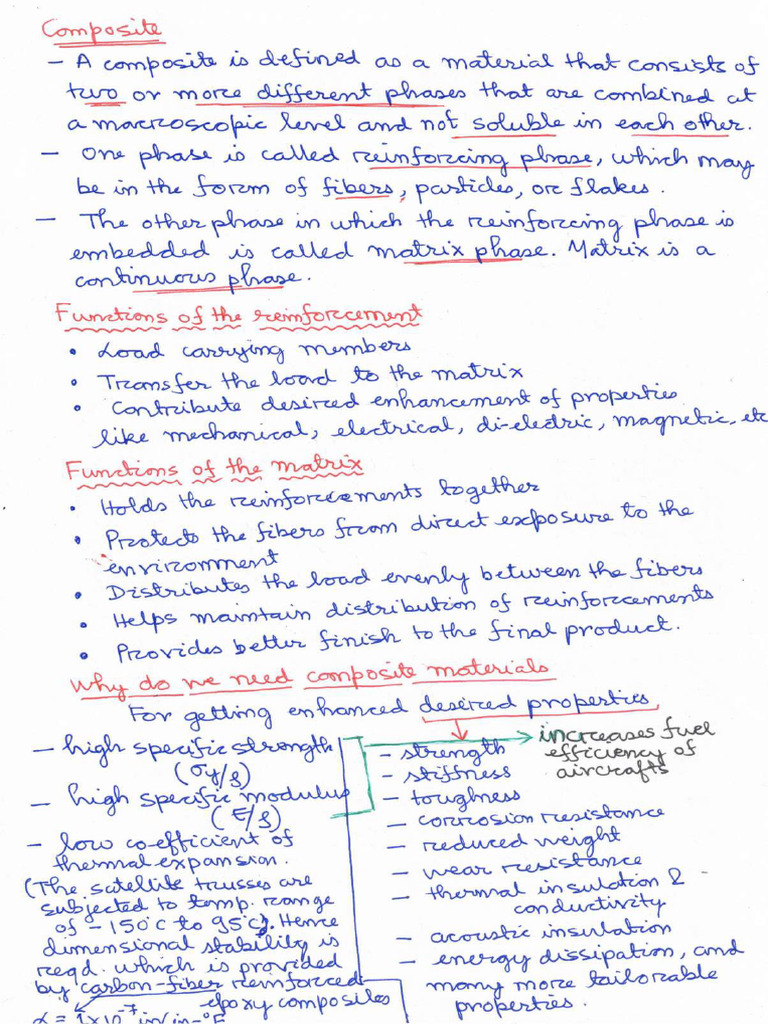 Composite
- A composite is defined as a material that consists of
two or more different phases that are combined at
a macroscopic level and not soluble in each other.
- One phase is called reinforcing phase, which may
be in the form of fibers, particles, or flakes.
- The other phase in which the reinforcing phase is
embedded is called matrix phase. Matrix is a
continuous phase.
Functions of the reinforcement
• Load carrying members
• Transfer the load to the matrix
• Contribute desired enhancement of properties
like mechanical, electrical, di-electric, magnetic, etc
Functions of the matrix
• Holds the reinforcements together
• Protects the fibers from direct exposure to the
environment
• Distributes the load evenly between the fibers
• Helps maintain distribution of reinforcements
• Provides better finish to the final product.
Why do we need composite materials
For getting enhanced desired properties
- high specific strength
(σy/ρ)
- high specific modulus
(E/ρ)
- low co-efficient of
thermal expansion.
(The satellite trusses are
subjected to temp. range
of -150°C to 95°C). Hence
dimensional stability is
reqd. which is provided
by carbon-fiber reinforced
epoxy composites
α = 1×10⁻⁷ in/in-°F
increases fuel
efficiency of
aircrafts
- strength
- stiffness
- toughness
- corrosion resistance
- reduced weight
- wear resistance
- thermal insulation &
conductivity
- acoustic insulation
- energy dissipation, and
many more tailorable
properties.